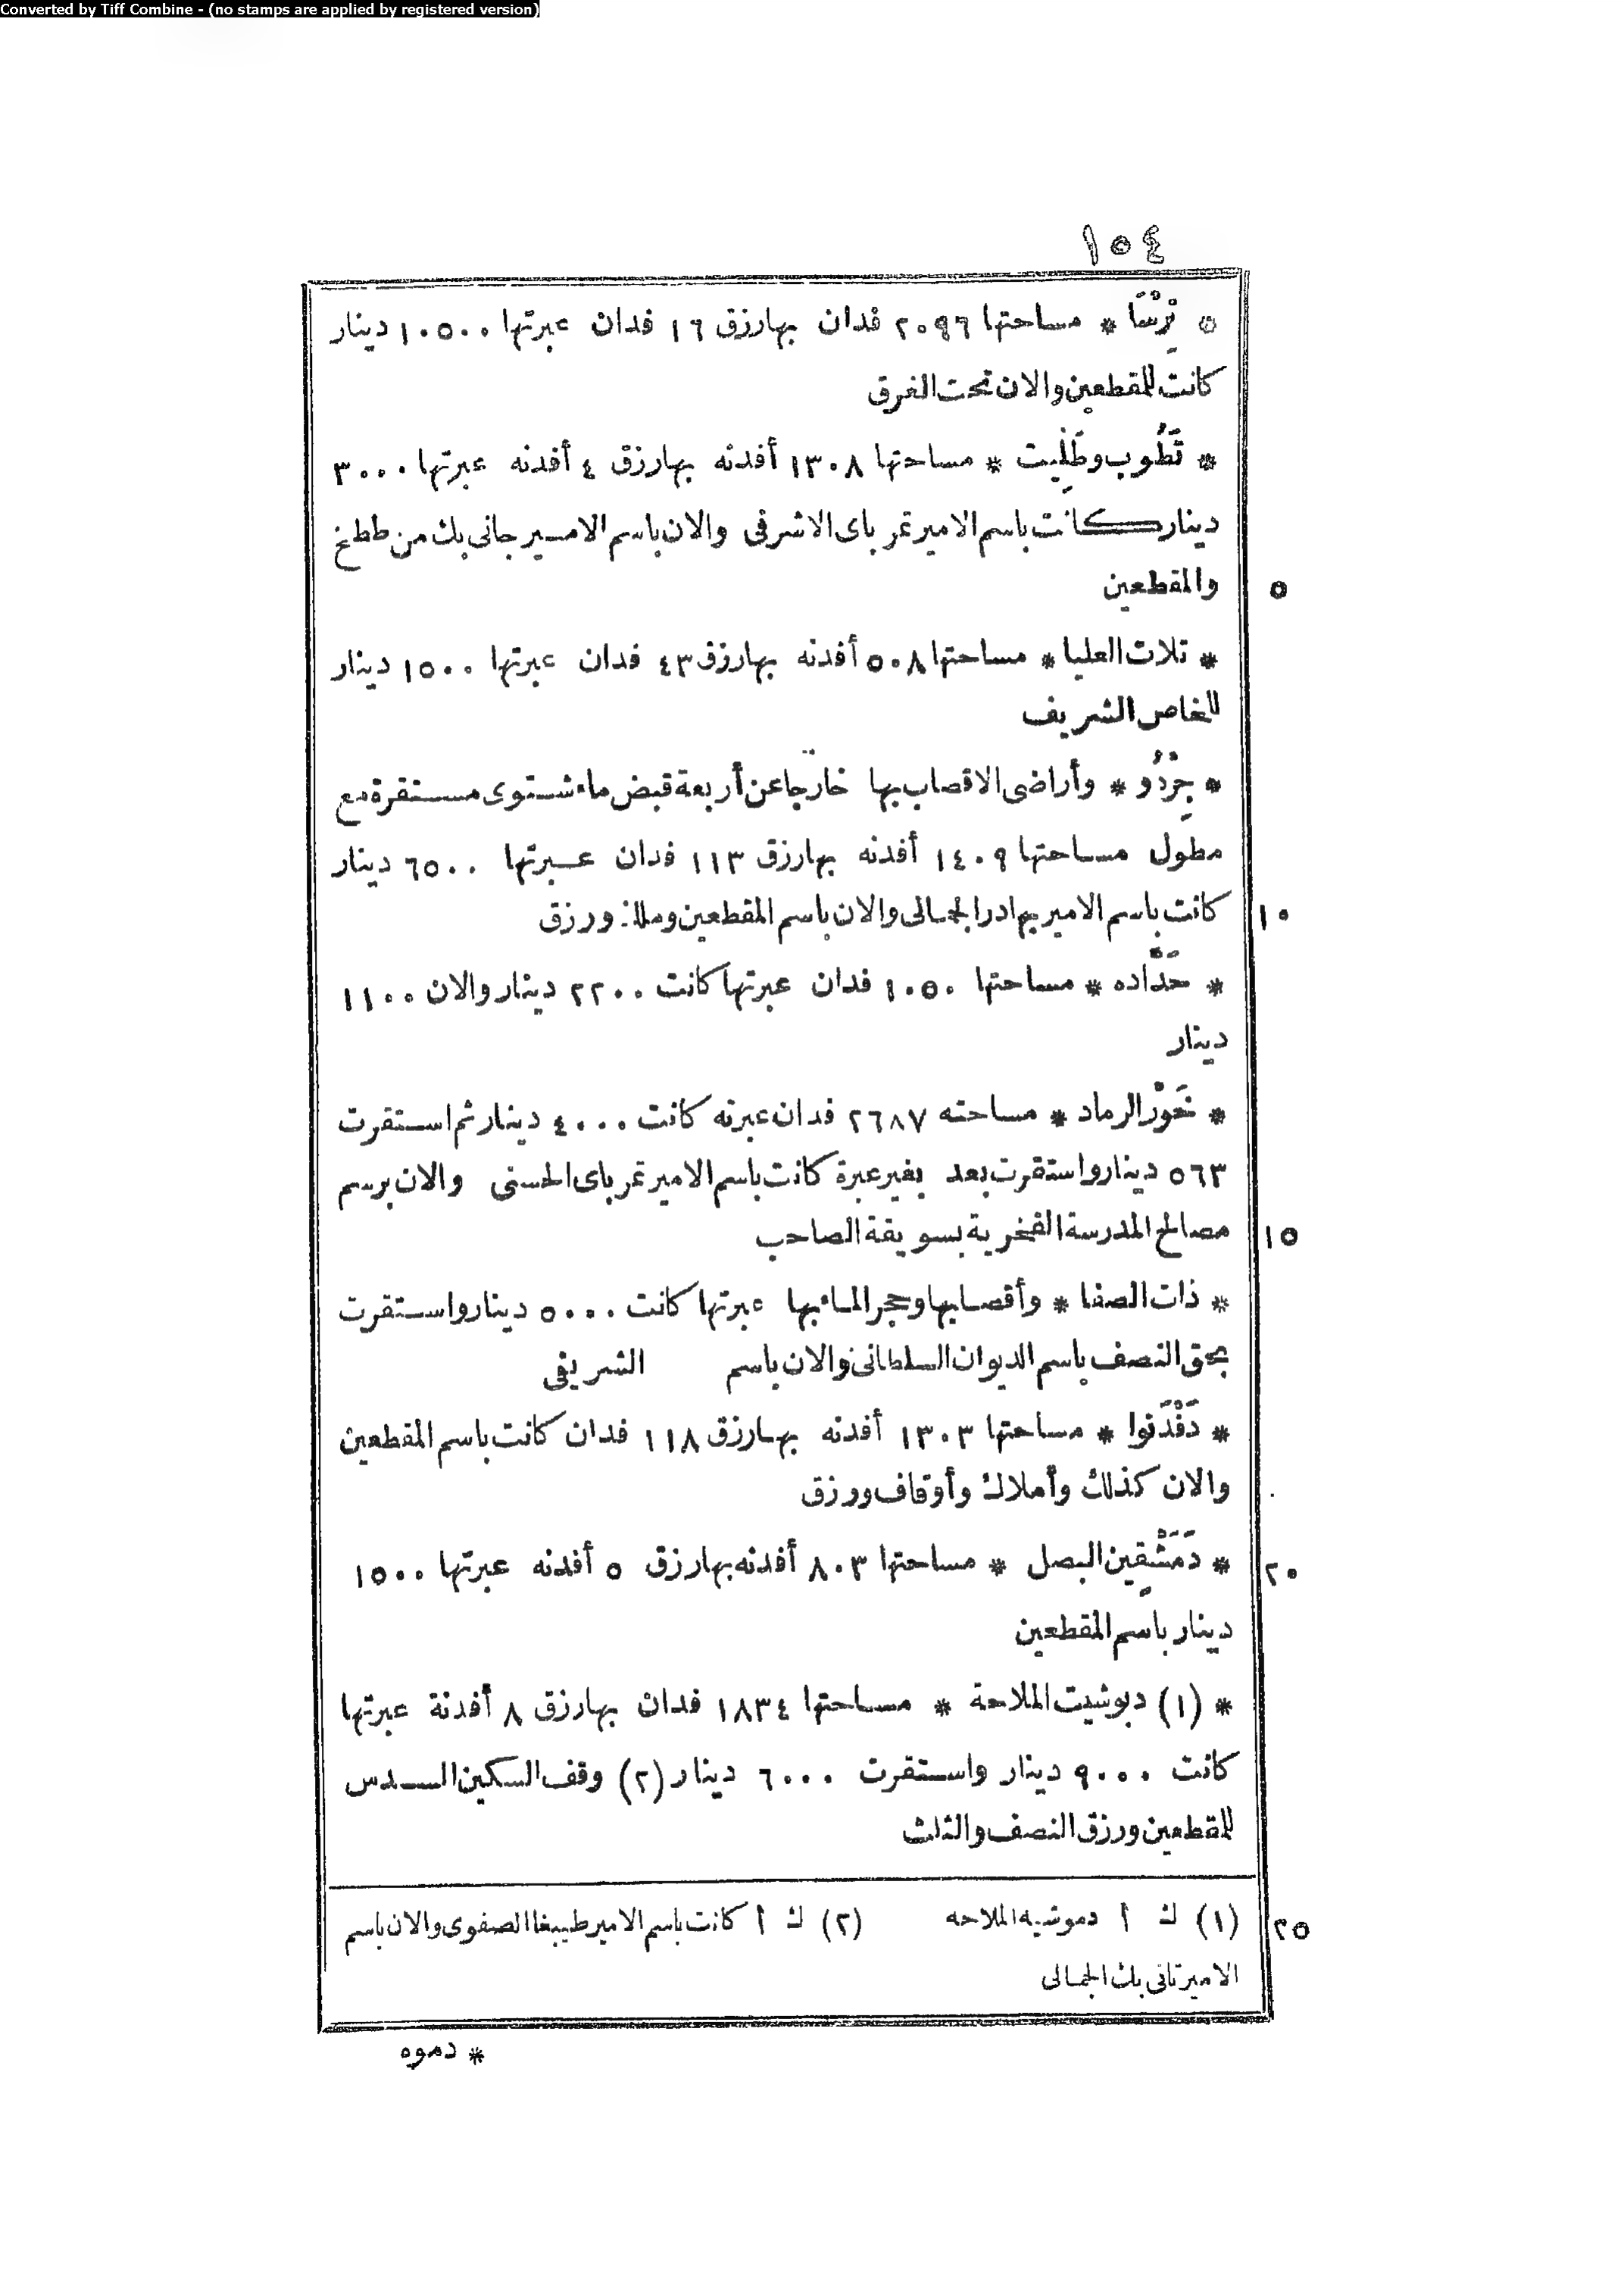 Converted by Tiff Combine - (no stamps are applied by registered version)
١٥٤
* تِرْسَا * مساحتها ٢٠٩٦ فدان بهارزق ١٦ فدان عبرتها ١٠٥٠٠ دينار
كانت للمقطعين والان تحت الغرق
* تَطُوب وطَلِيت * مساحتها ١٣٠٨ أفدنه بهارزق ٤ أفدنه عبرتها ٣٠٠٠
دينار كانت باسم الامير تمرباى الاشرفى والان باسم الامير جانى بك من ططخ
والمقطعين ٥
* تلات العليا * مساحتها ٥٠٨ أفدنه بهارزق ٤٣ فدان عبرتها ١٥٠٠ دينار
للخاص الشريف
* جِرْدُو * وأراضى الاقصاب بها خارجا عن أربعة قبض ماء شتوى مستقرة مع
مطول مساحتها ١٤٠٩ أفدنه بهارزق ١١٣ فدان عبرتها ٦٥٠٠ دينار
كانت باسم الامير بهادر الجمالى والان باسم المقطعين وملك ورزق ١٠
* حَدَّاده * مساحتها ١٠٥٠ فدان عبرتها كانت ٢٢٠٠ دينار والان ١١٠٠
دينار
* خَوْر الرماد * مساحته ٢٦٨٧ فدان عبرته كانت ٤٠٠٠ دينار ثم استقرت
٥٦٣ دينار واستقرت بعد بغير عبرة كانت باسم الامير تمرباى الحسنى والان برسم
مصالح المدرسة الفخرية بسويقة الصاحب ١٥
* ذات الصفا * وأقصابها وحجر الماء بها عبرتها كانت ٥٠٠٠ دينار واستقرت
بحق النصف باسم الديوان السلطانى والان باسم الشريفى
* دَفْدَنوا * مساحتها ١٣٠٣ أفدنه بهارزق ١١٨ فدان كانت باسم المقطعين
والان كذلك وأملاك وأوقاف ورزق
* دَمَشْقِين البصل * مساحتها ٨٠٣ أفدنه بهارزق ٥ أفدنه عبرتها ١٥٠٠ ٢٠
دينار باسم المقطعين
* (١) دبوشيت الملاحة * مساحتها ١٨٣٤ فدان بهارزق ٨ أفدنة عبرتها
كانت ٩٠٠٠ دينار واستقرت ٦٠٠٠ دينار (٢) وقف السكين السدس
للمقطعين ورزق النصف والثلث
(١) ك أ دموشيه الملاحه (٢) ك أ كانت باسم الامير طيبغا الصفوى والان باسم ٢٥
الامير تانى بك الجمالى
* دموه